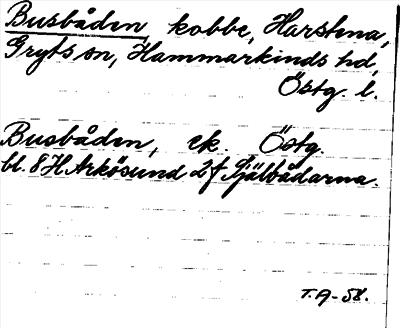 Busbåden, kobbe, Harstena,
Gryts sn, Hammarkinds hd,
Östg. l.
Busbåden, ek. Östg.
bl. 8H Arkösund 2f Själbådarna.
T.A-58.